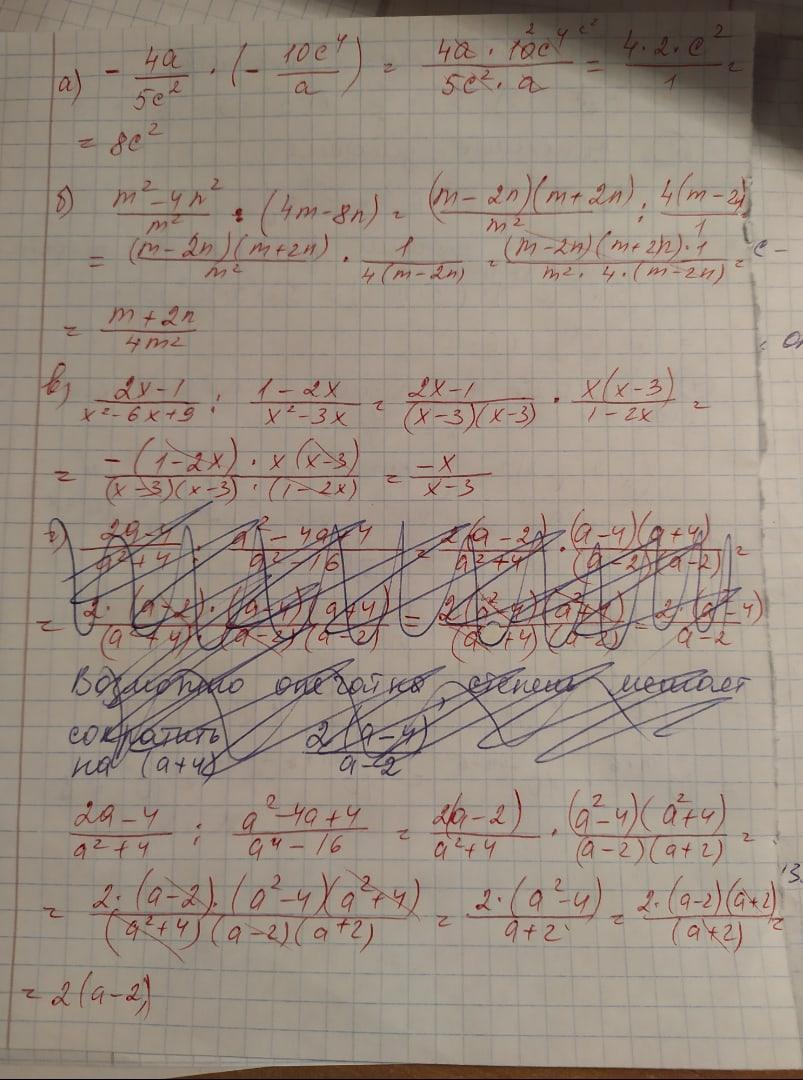 а) - 4a/5c² · (- 10c⁴/a) = 4a · 10c⁴/5c² · a = 4 · 2 · c²/1 =
= 8c²
б) m² - 4n²/m² : (4m - 8n) = (m - 2n)(m + 2n)/m² : 4(m - 2)/1
= (m - 2n)(m + 2n)/m² · 1/4(m - 2n) = (m - 2n)(m + 2n) · 1/m² · 4 · (m - 2n) =
= m + 2n/4m²
в) 2x - 1/x² - 6x + 9 : 1 - 2x/x² - 3x = 2x - 1/(x - 3)(x - 3) · x(x - 3)/1 - 2x =
= -(1 - 2x) · x(x - 3)/(x - 3)(x - 3) · (1 - 2x) = -x/x - 3
г) 2a - 4/a² + 4 : a² - 4a + 4/a² - 16 = 2(a - 2)/a² + 4 · (a - 4)(a + 4)/(a - 2)(a - 2) =
= 2 · (a - 2) · (a - 4)(a + 4)/(a² + 4) · (a - 2)(a - 2) =
Возможно опечатка, степень мешает
сократить 2(a - 4)/a - 2
на (a + 4)
2a - 4/a² + 4 : a² - 4a + 4/a⁴ - 16 = 2(a - 2)/a² + 4 · (a² - 4)(a² + 4)/(a - 2)(a + 2) =
= 2 · (a - 2) · (a² - 4)(a² + 4)/(a² + 4)(a - 2)(a + 2) = 2 · (a² - 4)/a + 2 = 2 · (a - 2)(a + 2)/(a + 2) =
= 2(a - 2)